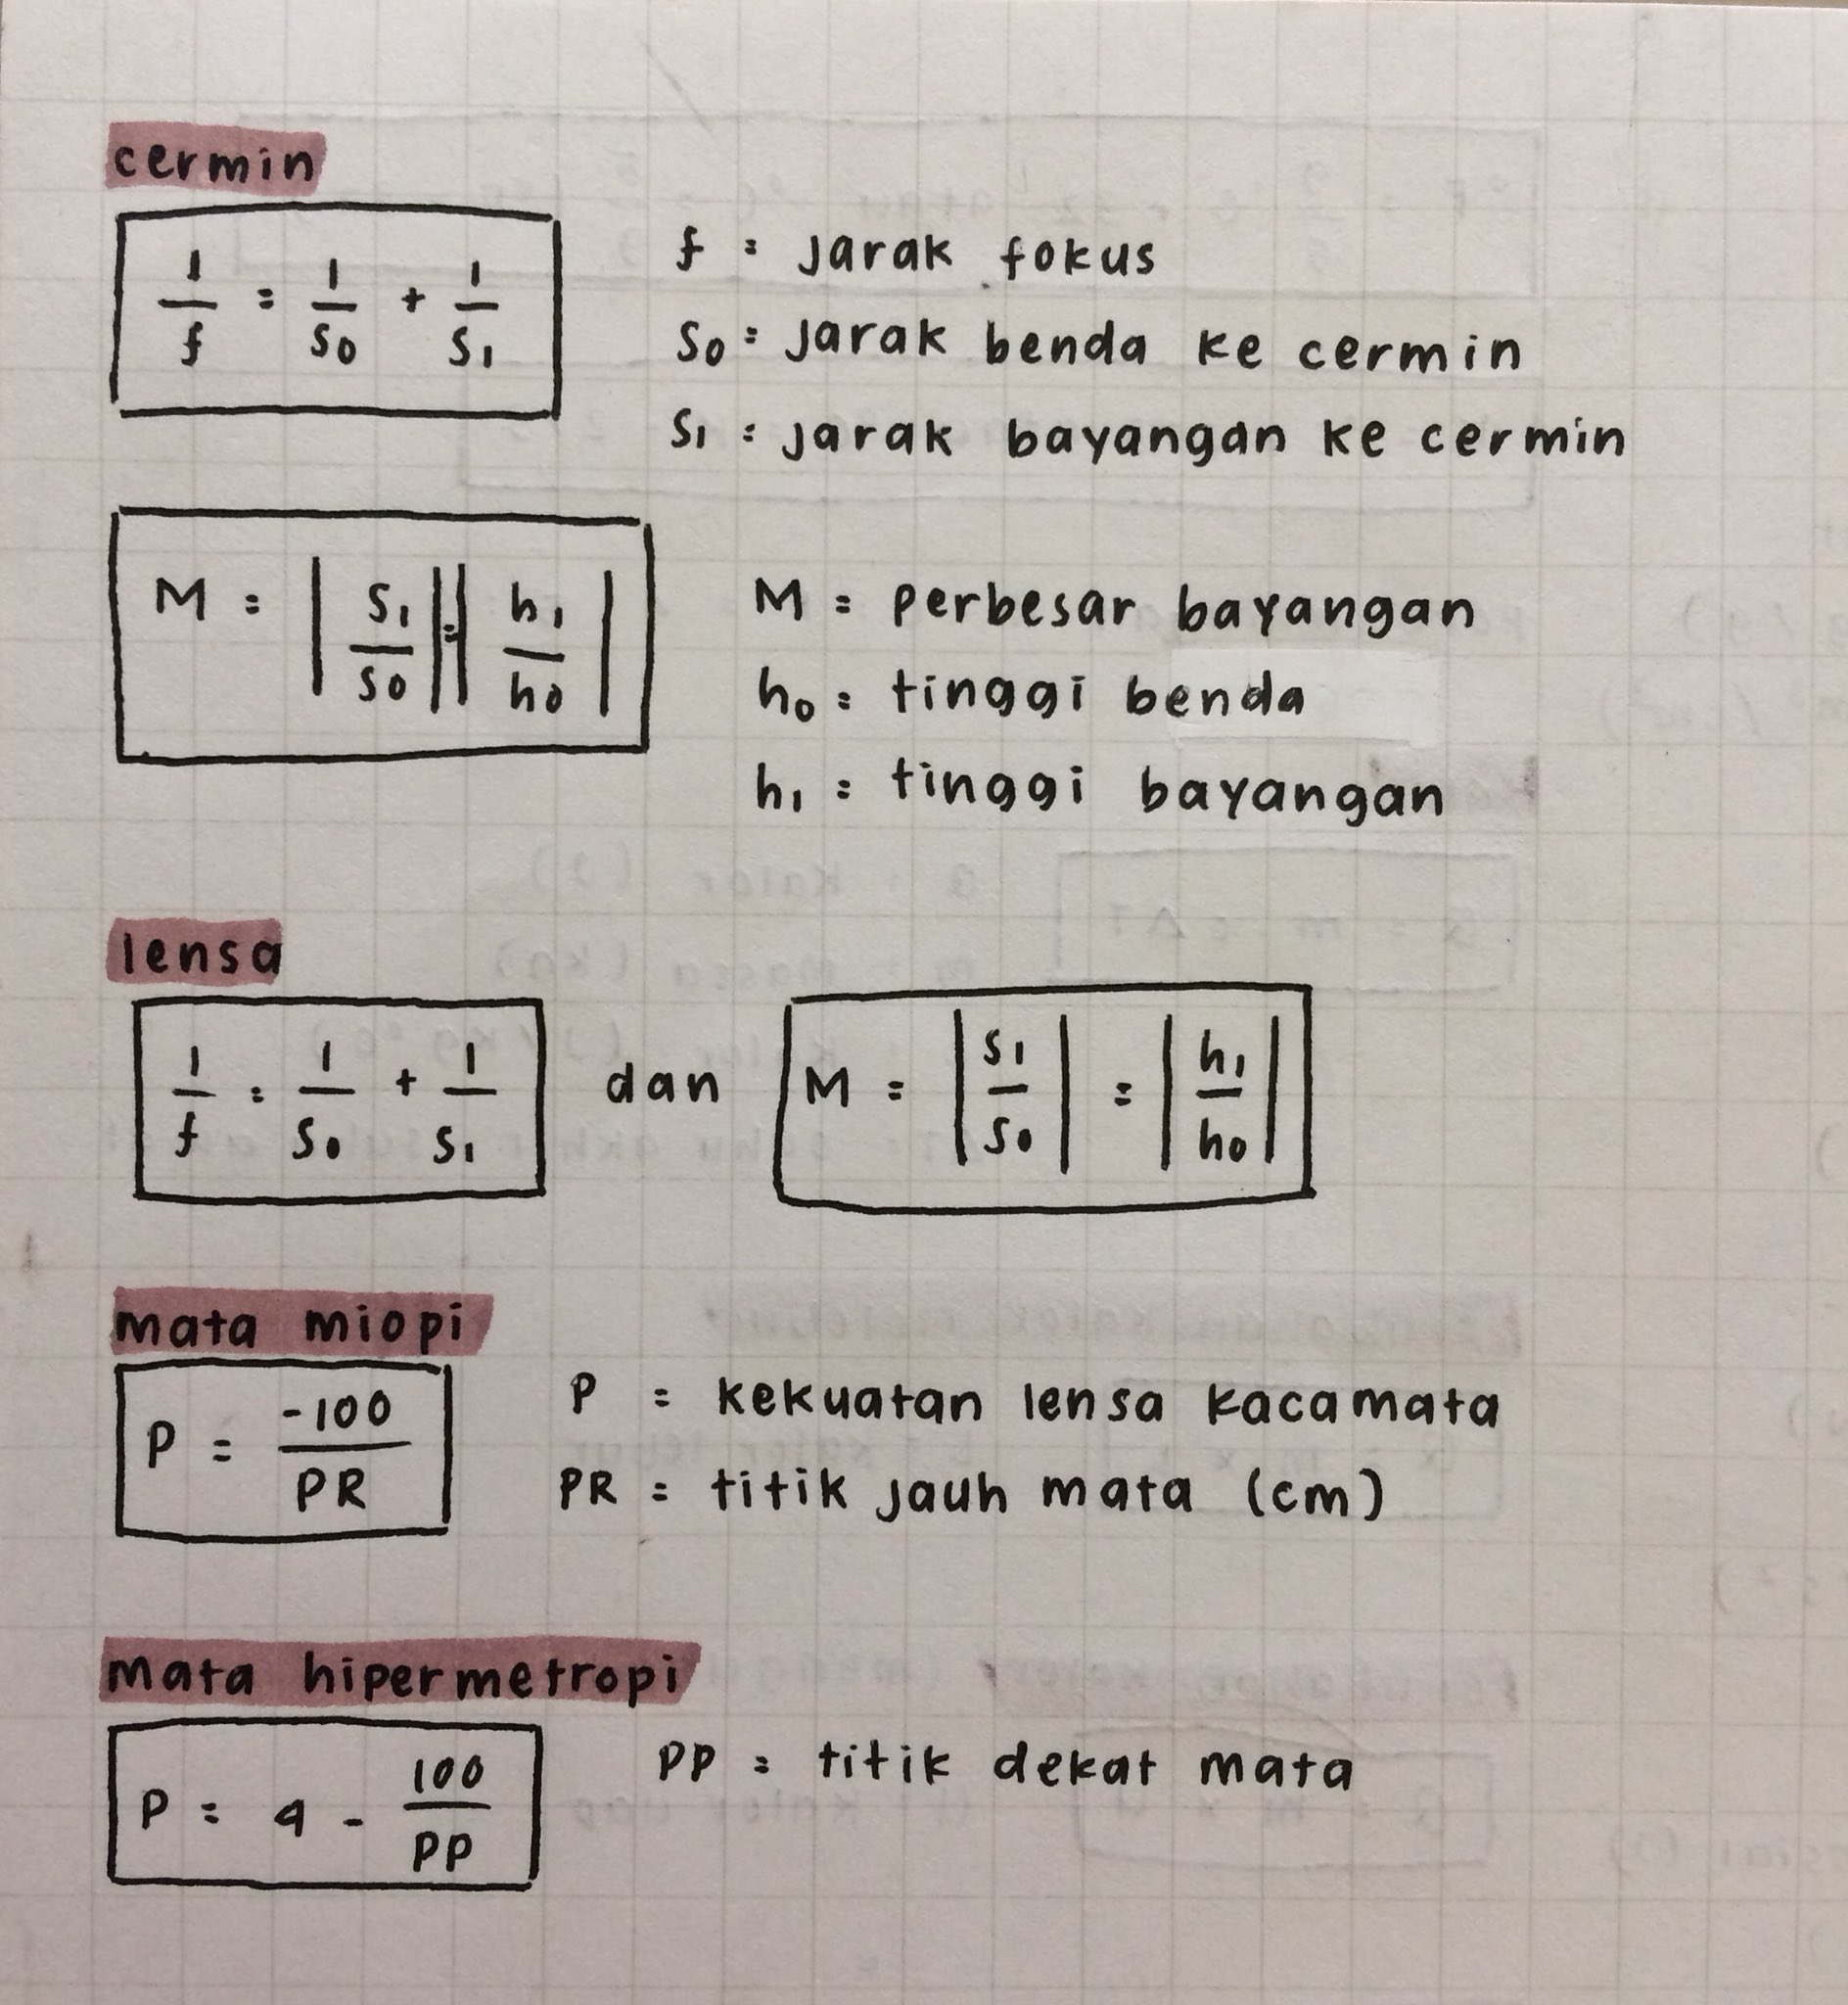 cermin
1/f = 1/s0 + 1/s1
f = jarak fokus
s0 = jarak benda ke cermin
s1 = jarak bayangan ke cermin
M = |s1/s0| = |h1/h0|
M = perbesar bayangan
h0 = tinggi benda
h1 = tinggi bayangan
lensa
1/f = 1/s0 + 1/s1 dan M = |s1/s0| = |h1/h0|
mata miopi
P = -100/PR
P = kekuatan lensa kacamata
PR = titik jauh mata (cm)
mata hipermetropi
P = 4 - 100/PP
PP = titik dekat mata